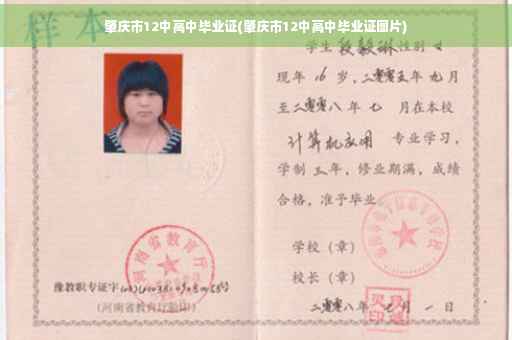 样本
肇庆市12中高中毕业证(肇庆市12中高中毕业证图片)
学生 段毅琳 性别 女
现年 16 岁，二零零五年 九月
至二零零八年 七 月在本校
计算机应用 专业学习，
学制 三 年，修业期满，成绩
合格，准予毕业
学校（章）
校长（章）
河南省教育厅
豫教职专证字
(河南省教育厅验印)
二零零八年 七 月 一 日